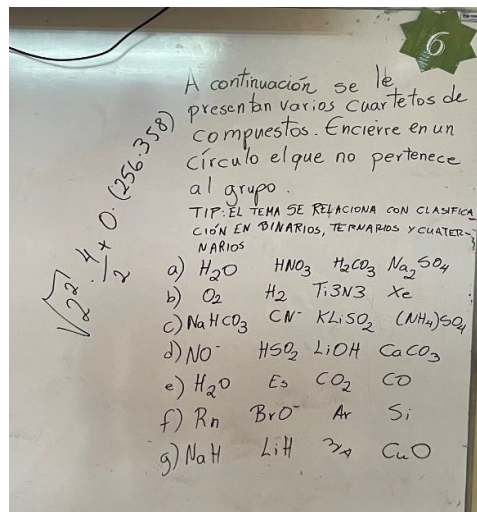 6
A continuación se le
presentan varios cuartetos de
compuestos. Encierre en un
círculo el que no pertenece
al grupo.
TIP: EL TEMA SE RELACIONA CON CLASIFICA
CIÓN EN BINARIOS, TERNARIOS Y CUATER-
NARIOS
a) H₂O HNO₃ H₂CO₃ Na₂SO₄
b) O₂ H₂ Ti3N3 Xe
c) NaHCO₃ CN⁻ KLiSO₂ (NH₄)SO₄
d) NO⁻ HSO₂ LiOH CaCO₃
e) H₂O Es CO₂ CO
f) Rn BrO⁻ Ar Si
g) NaH LiH CuO
√2² · 4/2 + 0 · (256·358)